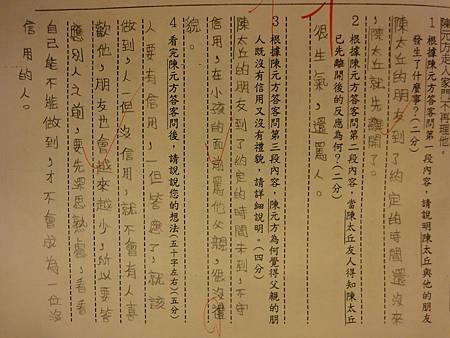 陳元方走人家門不再理他。
1 根據陳元方答客問第一段內容,請說明陳太丘與他的朋友
發生了什麼事?(二分)
陳太丘的朋友到了約定的時間還沒來
,陳太丘就先離開了。
2 根據陳元方答客問第二段內容,當陳太丘友人得知陳太丘
已先離開後的反應為何?(二分)
很生氣,還罵人。
3 根據陳元方答客問第三段內容,陳元方為何覺得父親的朋
人既沒有信用又沒有禮貌,請詳細說明。(四分)
陳太丘的朋友到了約定的時間未到,不守
信用,在小孩的面前罵他父親,很沒禮
貌。
4 看完陳元方答客問後,請說說您的想法(五十字左右)(五分)
人要有信用,一但答應了,就該
做到,人一但沒信用,就不會有人喜
歡他,朋友也會越來越少,所以要答
應別人之前,要先深思熟慮,看看
自己能不能做到,才不會成為一位沒
信用的人。